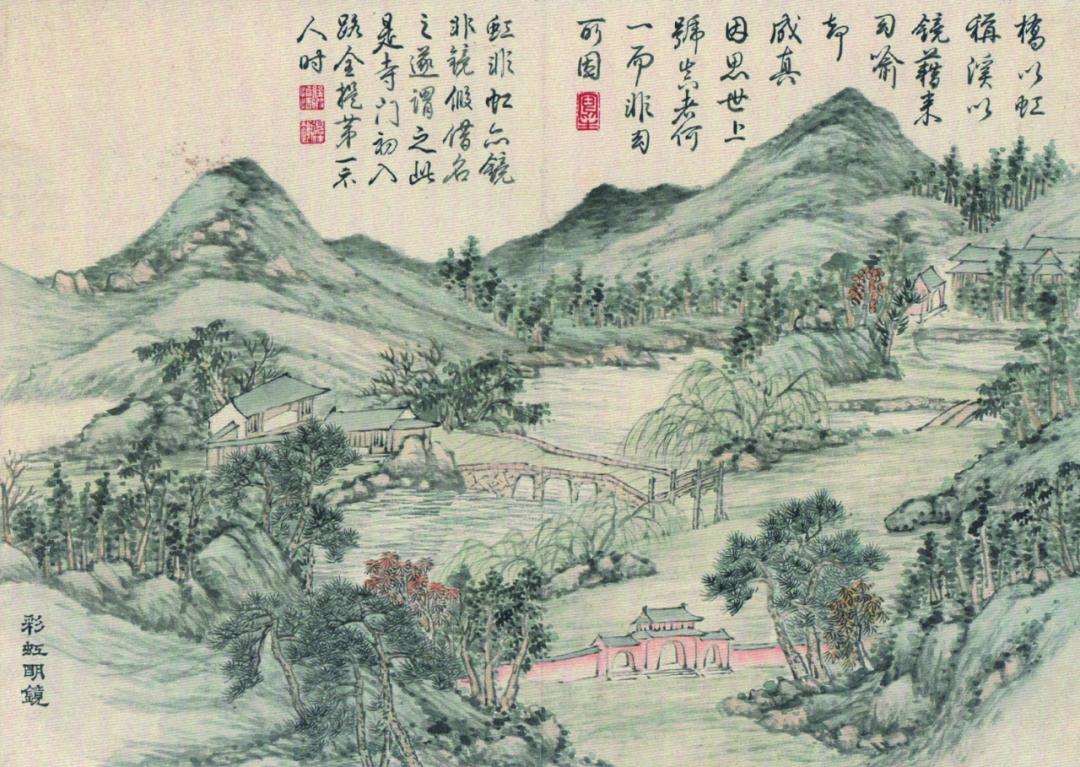 橋以虹
稱溪以
鏡藉来
幻喻
却
成真
因思世上
號者何
一而非幻
所因
虹非虹亦鏡
非鏡假借名
之遂謂之此
是寺門初入
路全提第一示
人时
彩虹明鏡